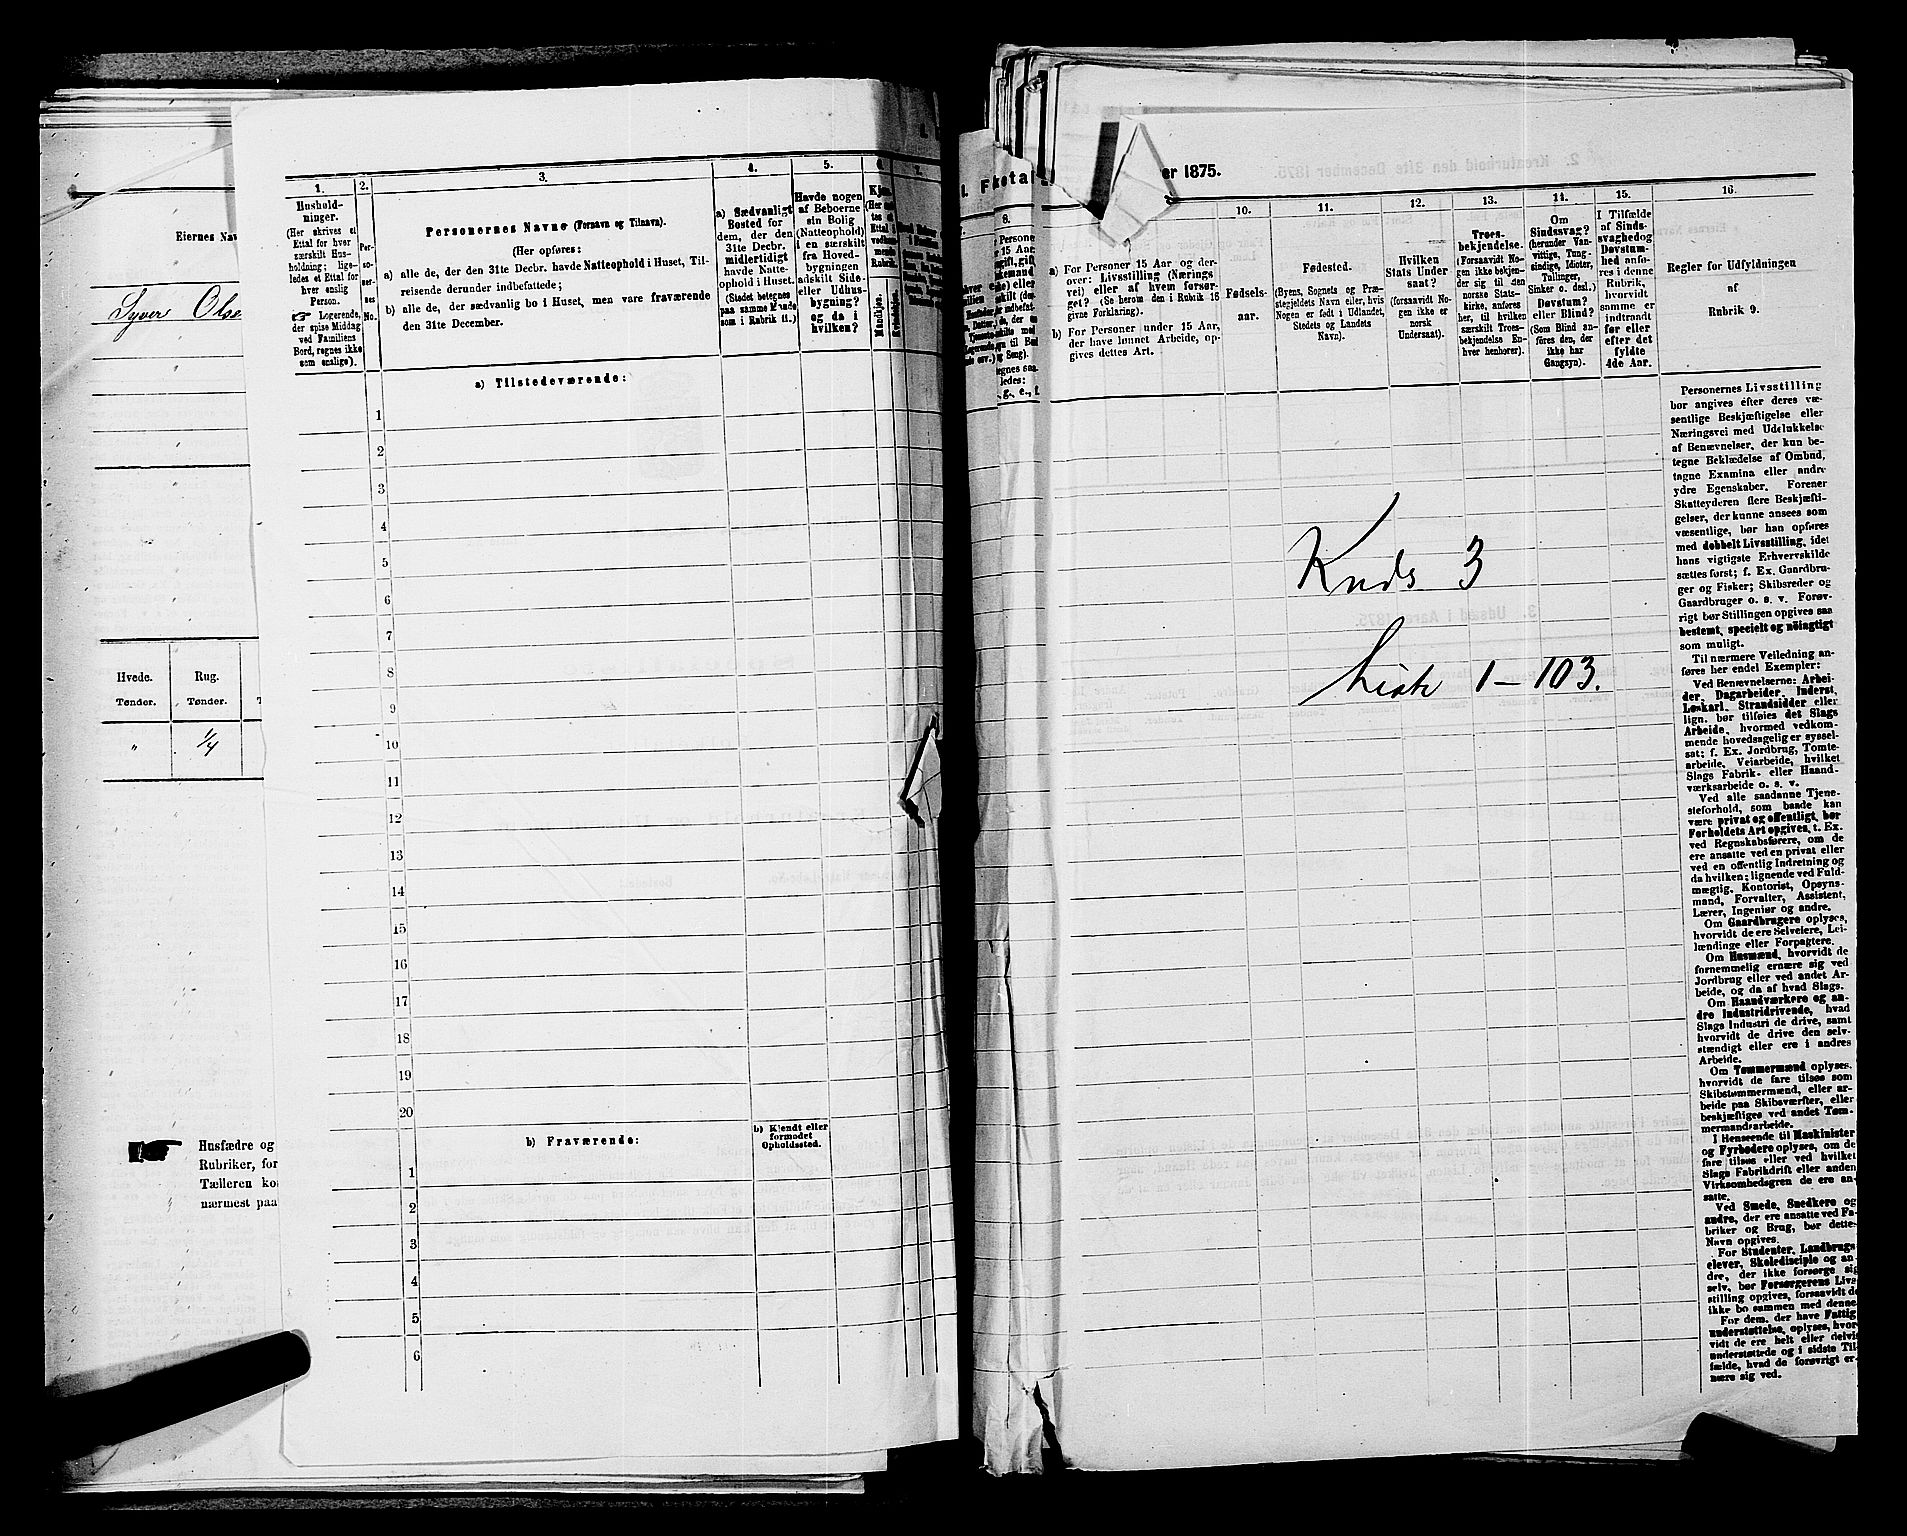 Eiernes Nav
Syver Olse
Hvede.
Rug.
Tønder.
Tønder.
"
1/4
Husfædre og
Rubriker, for
Tælleren ko
nærmest paa
1.
2.
3.
4.
5.
6.
7.
Hushold-
ninger.
(Her skrives et
Ettal for hver
særskilt Hus-
holdning; lige-
ledes et Ettal for
hver enslig
Person.
☞ Logerende,
der spise Middag
ved Familiens
Bord, regnes ikke
som enslige).
Per-
so-
ner-
nes
No.
Personernes Navne (Fornavn og Tilnavn).
(Her opføres:
a) alle de, der den 31te Decbr. havde Natteophold i Huset, Til-
reisende derunder indbefattede;
b) alle de, der sædvanlig bo i Huset, men vare fraværende
den 31te December.
a) Sædvanligt
Bosted for
dem, der den
31te Decbr.
midlertidigt
havde Natte-
ophold i Huset.
(Stedet betegnes
paa samme Maade
som i Rubrik 11.)
Havde nogen
af Beboerne
sin Bolig
(Natteophold)
i en særskilt
fra Hoved-
bygningen
adskilt Side-
eller Udhus-
bygning?
og da i
hvilken?
Kjøn.
Mandkjøn.
Kvindekjøn.
a) Tilstedeværende:
1
2
3
4
5
6
7
8
9
10
11
12
13
14
15
16
17
18
19
20
b) Fraværende:
b) Kjendt eller
formodet
Opholdssted.
1
2
3
4
5
6
er 1875.
8.
10.
11.
12.
13.
14.
15.
16.
a) For Personer 15 Aar og der-
over: Livsstilling (Nærings-
vei) eller af hvem forsør-
get? (Se herom den i Rubrik 16
givne Forklaring).
b) For Personer under 15 Aar,
der have lønnet Arbeide, op-
gives dettes Art.
Fødsels-
aar.
Fødested.
(Byens, Sognets og Præ-
stegjeldets Navn eller, hvis
Nogen er født i Udlandet,
Stedets og Landets
Navn).
Hvilken
Stats Under-
saat?
(forsaavidt No-
gen ikke er
norsk
Undersaat).
Troes-
bekjendelse.
(Forsaavidt No-
gen ikke bekjen-
der sig til den
norske Stats-
kirke, anføres
her, til hvilken
særskilt Troes-
bekjendelse En-
hver henhører).
Om
Sindssvag?
(herunder Van-
vittige, Tung-
sindige, Idioter,
Tullinger,
Sinker o. desl.)
Døvstum?
eller Blind?
(Som Blind an-
føres den, der
ikke har
Gangsyn).
I Tilfælde
af Sinds-
svaghed og
Døvstum-
hed anfø-
res i denne
Rubrik,
hvorvidt
samme er
indtraadt
før eller
efter det
fyldte
4de Aar.
Regler for Udfyldningen
af
Rubrik 9.
Knds 3
Liste 1 – 103.
Personernes Livsstilling
bør angives efter deres væ-
sentlige Beskjæftigelse eller
Næringsvei med Udelukkelse
af Benævnelser, der kun be-
tegne Beklædelse af Ombud,
tagne Examina eller andre
ydre Egenskaber. Forener
Skatteyderen flere Beskjæfti-
gelser, der kunne ansees som
væsentlige, bør han opføres
med dobbelt Livsstilling, idet
hans vigtigste Erhvervskilde
sættes først; f. Ex. Gaardbru-
ger og Fisker; Skibsreder og
Gaardbruger o. s. v. Forøv-
rigt bør Stillingen opgives saa
bestemt, specielt og nöiagtigt
som muligt.
Til nærmere Veiledning an-
føres her endel Exempler:
Ved Benævnelserne: Arbei-
der, Dagarbeider, Inderst,
Løskarl, Strandsidder eller
lign. bør tilføies det Slags
Arbeide, hvormed vedkom-
mende hovedsagelig er syssel-
sat; f. Ex. Jordbrug, Tomte-
arbeide, Veiarbeide, hvilket
Slags Fabrik- eller Haand-
værksarbeide o. s. v.
Ved alle saadanne Tjene-
steforhold, som baade kan
være privat og offentligt, bør
Forholdets Art opgives, t. Ex.
ved Regnskabsførere, om de
ere ansatte ved en privat eller
ved en offentlig Indretning og
da hvilken; lignende ved Fuld-
mægtig, Kontorist, Opsyns-
mand, Forvalter, Assistent,
Lærer, Ingeniør og andre.
Om Gaardbrugere oplyses,
hvorvidt de ere Selveiere, Lei-
lændinge eller Forpagtere.
Om Husmænd, hvorvidt de
fornemmelig ernære sig ved
Jordbrug eller ved andet Ar-
beide, og da af hvad Slags.
Om Haandværkere og an-
dre Industridrivende, hvad
Slags Industri de drive, samt
hvorvidt de drive den selv-
stændigt eller ere i andres
Arbeide.
Om Tømmermænd oplyses,
hvorvidt de fare tilsøs som
Skibstømmermænd, eller ar-
beide paa Skibsværfter, eller
beskjæftiges ved andet Tøm-
mermandsarbeide.
I Henseende til Maskinister
og Fyrbødere oplyses, om de
fare tilsøs eller ved hvilket
Slags Fabrikdrift eller anden
Virksomhedsgren de ere an-
satte.
Ved Smede, Snedkere og
andre, der ere ansatte ved Fa-
briker og Brug, bør dette-
Navn opgives.
For Studenter, Landbrugs-
elever, Skoledisciple og an-
dre, der ikke forsørge sig
selv, bør Forsørgerens Livs-
stilling opgives, forsaavidt de
ikke bo sammen med denne.
For dem, der have Fattig-
understøttelse, oplyses, hvor-
vidt de ere helt eller delvis
understøttede og i sidste Til-
fælde, hvad de forøvrigt er-
nære sig ved.